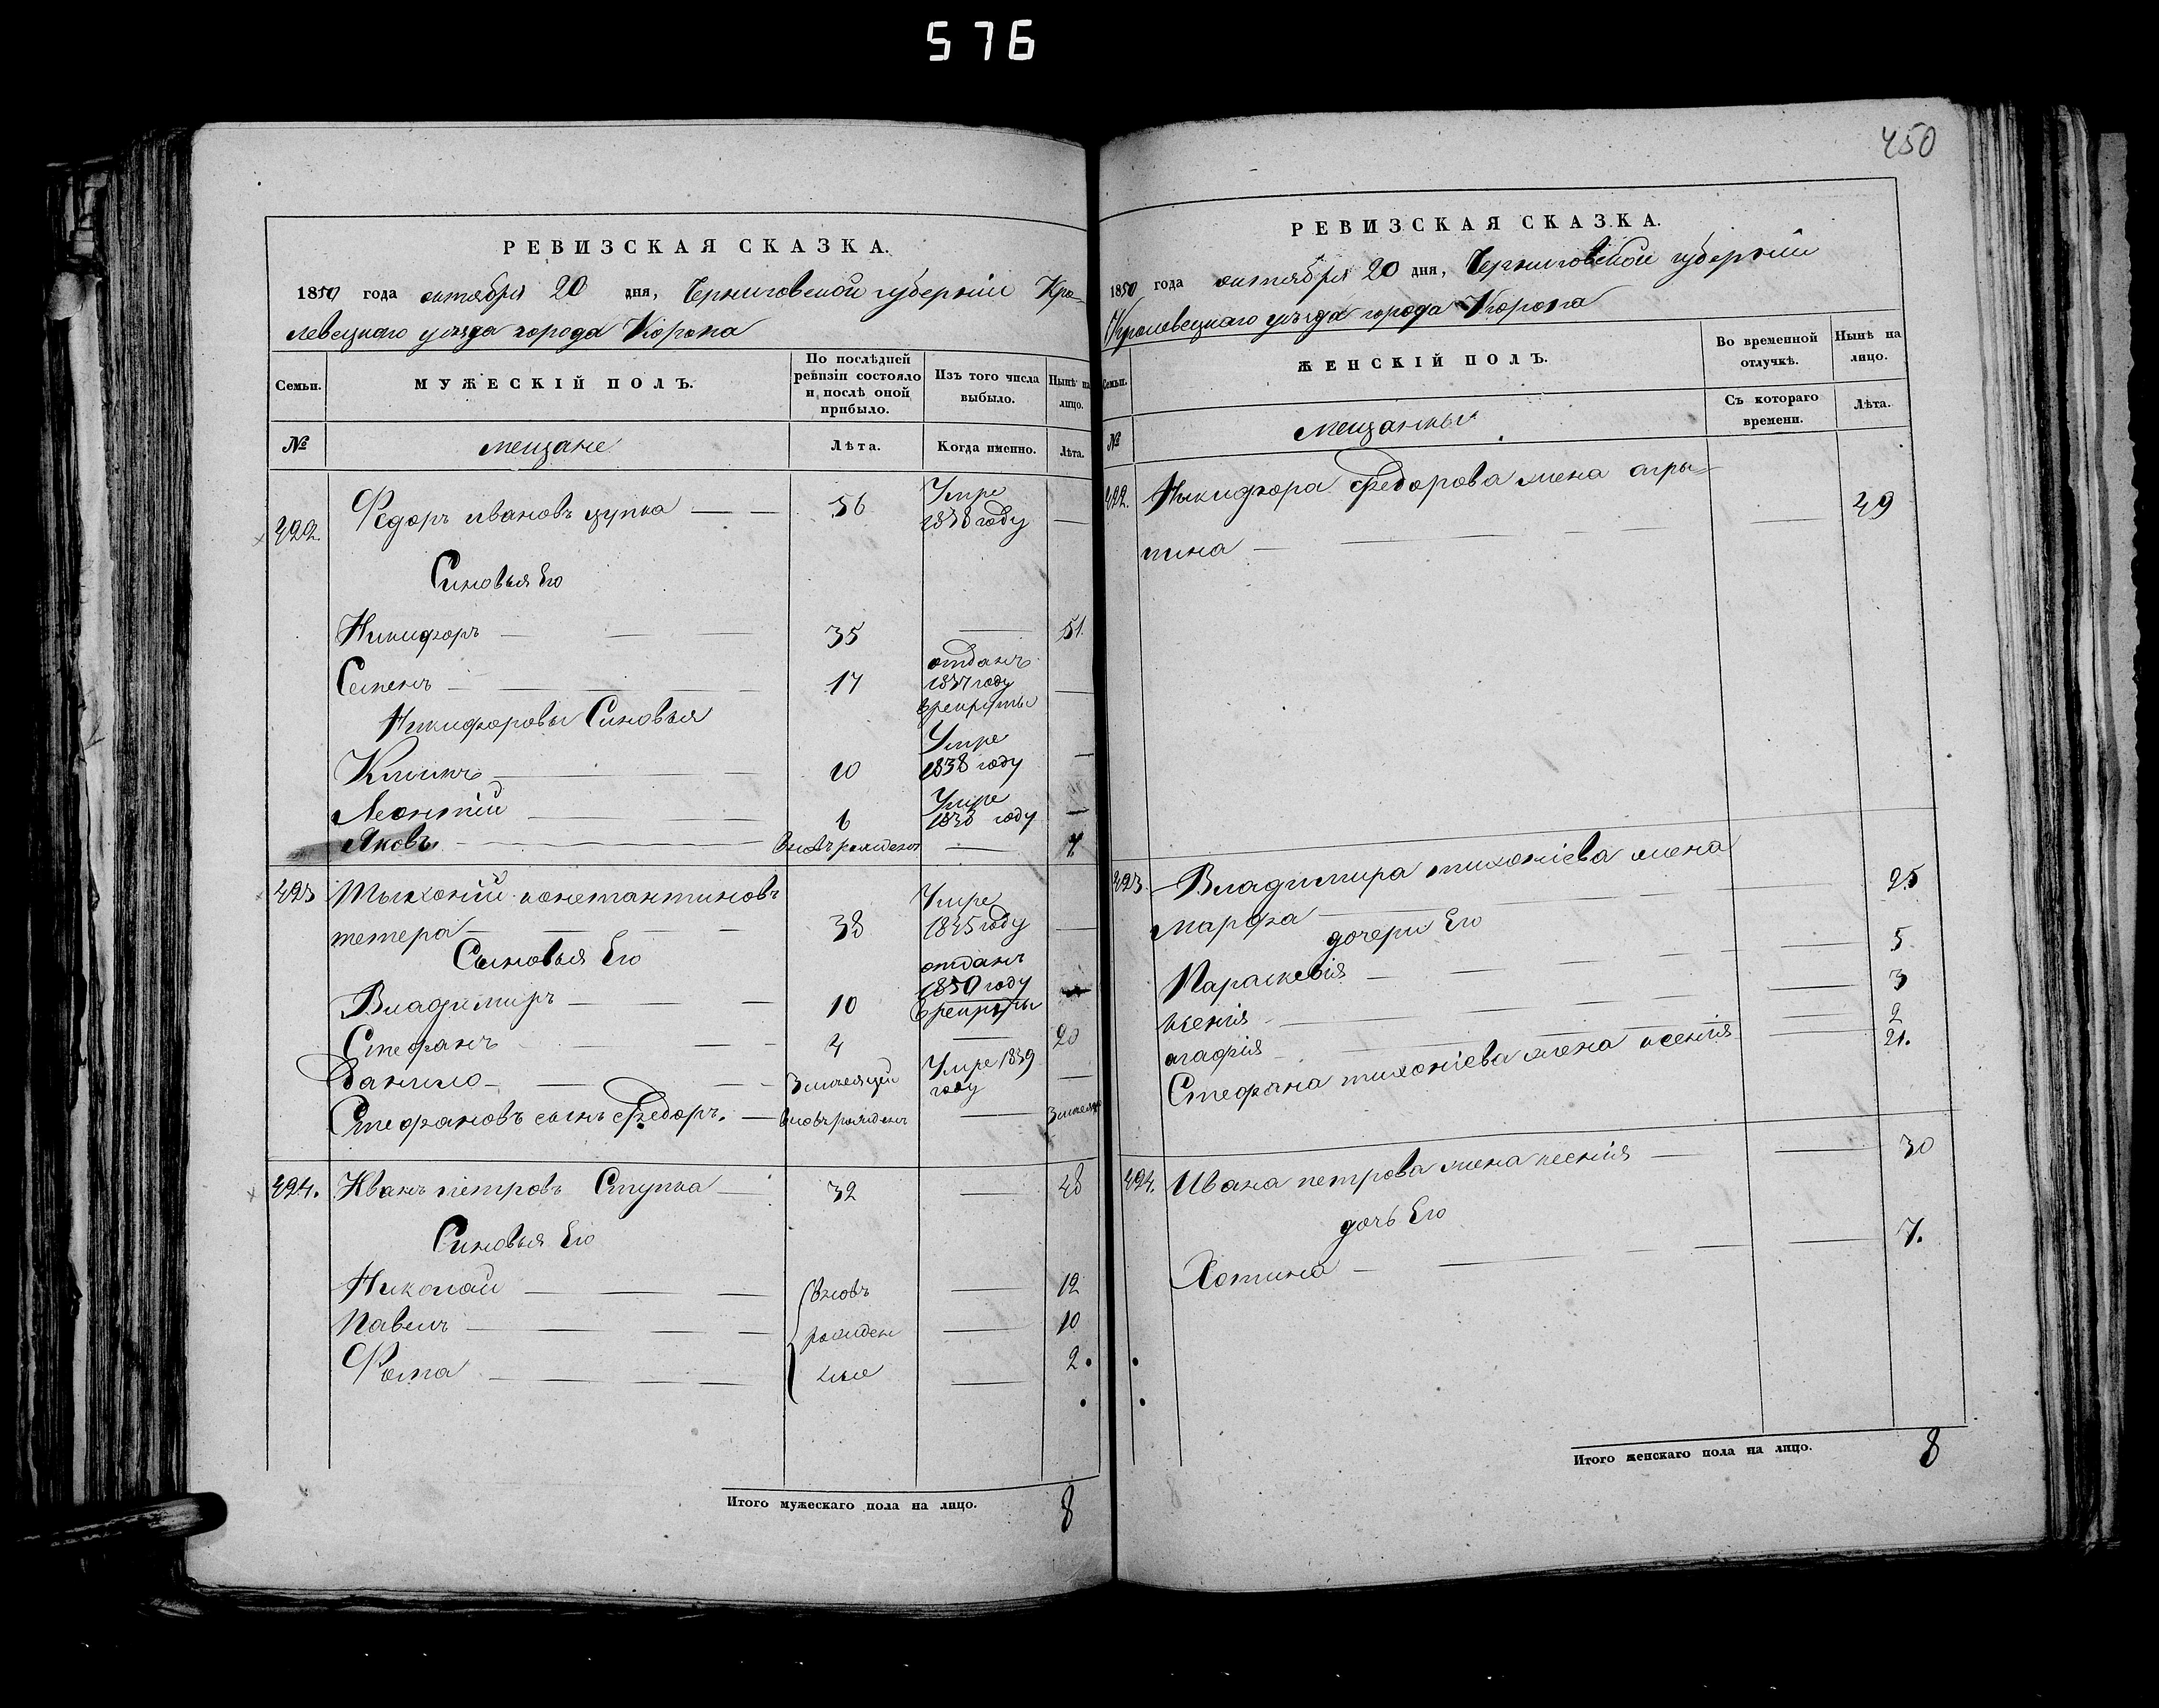 576
450
РЕВИЗСКАЯ СКАЗКА.
1850 года октября 20 дня, Черниговской губерніи Кро-
левецкаго уезда города Коропа
Семьи.
МУЖЕСКІЙ ПОЛЪ.
По послѣдней
ревизіи состояло
и послѣ оной
прибыло.
Изъ того числа
выбыло.
Нынѣ на
лицо.
№
мещане
Лѣта.
Когда именно.
Лѣта.
422. Федоръ ивановъ цупка 56 Умре
1838 году
Синовья Его
Никифоръ 35 51.
Семенъ 17 отданъ
1837 году
в рекруты
Никифоровы Синовья
Климъ 10 Умре
1838 году
Леонтій 6 Умре
1838 году
Яковъ вновъ рожденъ 7
423 Тыхоній константиновъ
тетера 38 Умре
1845 году
Сыновья Его
Владимиръ 10 отданъ
1850 году
в рекруты
Стефанъ 4 20
Данило 3 месяцей Умре 1839
году
Стефановъ сынъ Федоръ. вновъ рожденъ 3 месяца
424. Иванъ петровъ Ступка 32 48
Синовья Его
Николай вновъ 12
Павелъ рожден 10
Фома ные 2
Итого мужескаго пола на лицо. 8
РЕВИЗСКАЯ СКАЗКА.
1850 года октября 20 дня, Черниговской губерніи
Кролевецкаго уезда города Коропа
Семьи.
ЖЕНСКІЙ ПОЛЪ.
Во временной
отлучкѣ.
Нынѣ на
лицо.
№
мещанкы
Съ котораго
времени.
Лѣта.
422. Ныкифора Федорова жена агры=
пина 49
423. Владимира тихоніева жена
марфа 25
дочери Его
Параскевія 5
ксенія 3
агафія 2
Стефана тихоніева жена ксенія 21.
424. Ивана петрова жена ксенія 30
дочь Его
Хотина 7.
Итого женскаго пола на лицо. 8